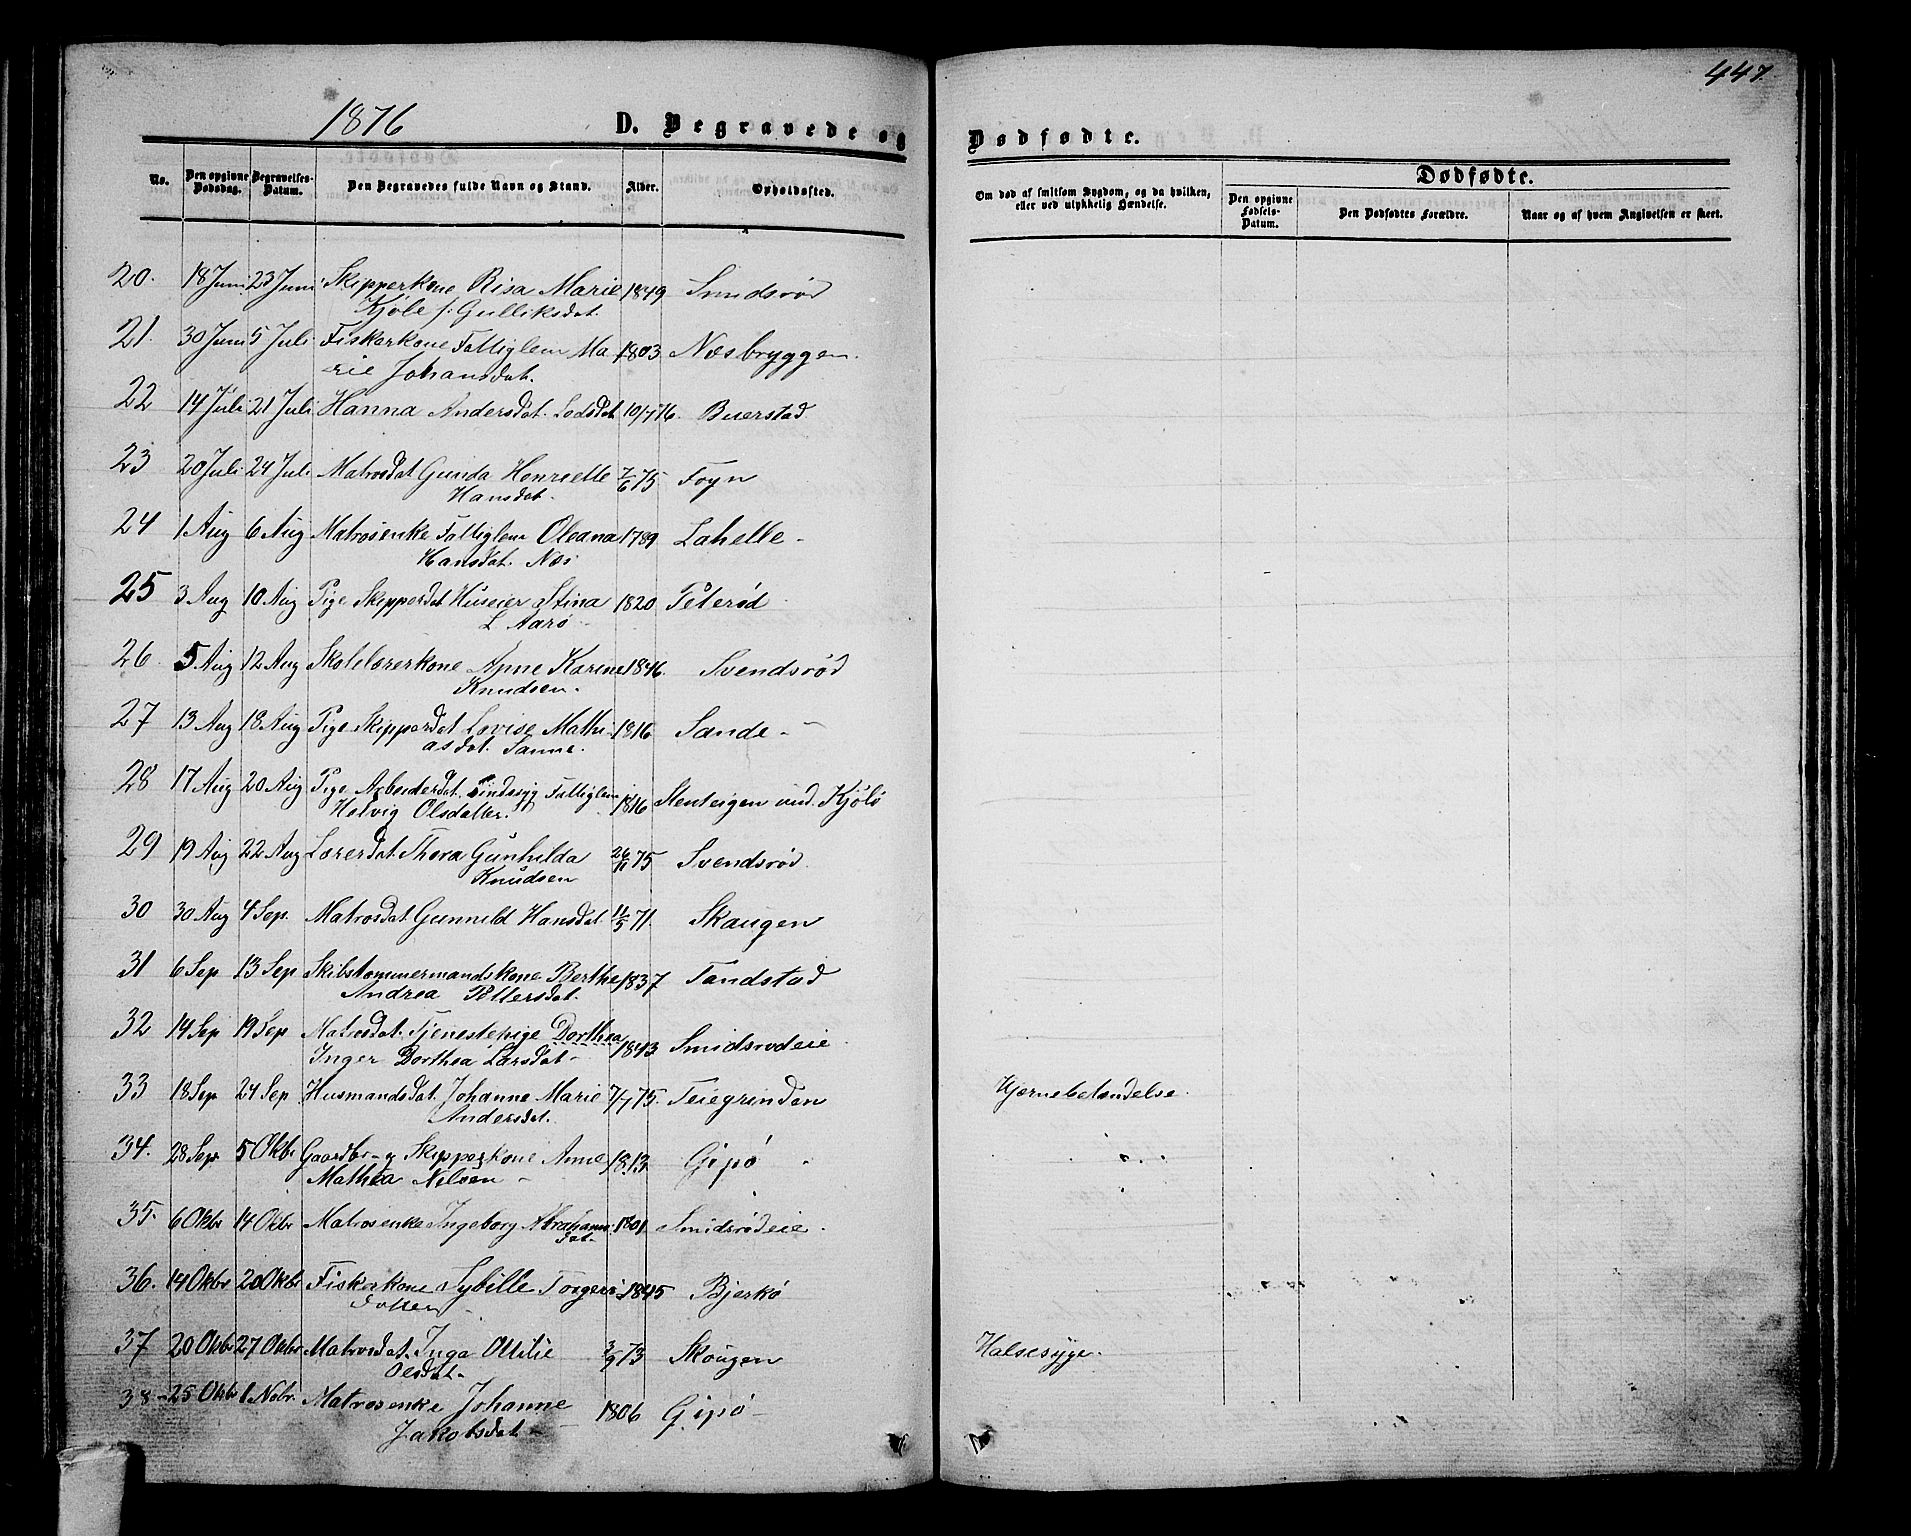 447.
1876
D. Begravede og
Dødfødte.
No.
Den opgivne Dødsdag.
Begravelses-Datum.
Den Begravedes fulde Navn og Stand.
Alder.
Opholdssted.
Om død af smitsom Sygdom, og da hvilken, eller ved ulykkelig Hændelse.
Dødfødte.
Den opgivne Fødsels-Datum.
Den Dødfødtes Forældre.
Naar og af hvem Angivelsen er skeet.
20. 18 Juni 23 Juni Skipperkone Risa Marie 1849
Kjöle f. Gulliksdat.
21. 30 Juni 5 Juli Fiskerkone Fattiglem Ma 1803 Næsbryggen.
rie Johansdat.
22 14 Juli 21 Juli Hanna Andersdat. Lodsdat 10/7 76. Buerstad
23 20 Juli 24 Juli Matrosdat Gunda Henriette 7/6 75 Foyn
Hansdat.
24 1 Aug 6 Aug Matrosenke Fattiglem Oleana 1789 Lahelle
Hansdat. Næs
25 3 Aug 10 Aug Pige Skipperdat Huseier Stina 1820 Peterød
L Aarø
26. 5 Aug 12 Aug Skolelærerkone Anne Karine 1846. Svendsrød
Knudsen.
27 13 Aug 18 Aug Pige Skipperdat Lovise Mathi- 1816 Sande
asdat. Sanne.
28 17 Aug 20 Aug Pige Arbeiderdat. Sindssyg Fattiglem 1816 Stenteigen und. Kjöle
Helvig Olsdatter.
29 19 Aug 22 Aug Lærerdat. Thora Gunhilda 26/11 75 Svendsrød
Knudsen
30 30 Aug 4 Sep. Matrosdat. Gunnild Hansdat. 11/5 71. Skaugen
31 6 Sep 13 Sep Skibstømmermandskone Berthe 1837 Tandstad
Andrea Pettersdat.
32 14 Sep 19 Sep Matrosdat. Tjenestepige Dorthea 1843 Smidsrødeie.
Inger Dorthea Larsdat
33 18 Sep 24 Sep Husmandsdat. Johanne Marie 7/7 75. Teiegrinden Hjernebetændelse.
Andersdat.
34. 28 Sep 5 Oktbr Gaardbr- og Skipperkone Anne 1813 Gipø
Mathea Nelsen
35. 6 Oktbr 14 Oktbr Matrosenke Ingeborg Abrahams- 1801. Smidsrødeie.
dat.
36. 14 Oktbr 20 Oktbr Fiskerkone Sybille Torgers- 1845 Bjerkø
datter
37 20 Oktbr 27 Oktbr Matrosdat. Inga Ottilie 3/9 73 Skougen Halsesyge.
Olsdat.
38 25 Oktbr 1 Nobr. Matrosenke Johanne 1806 Gipø
Jakobsdat.